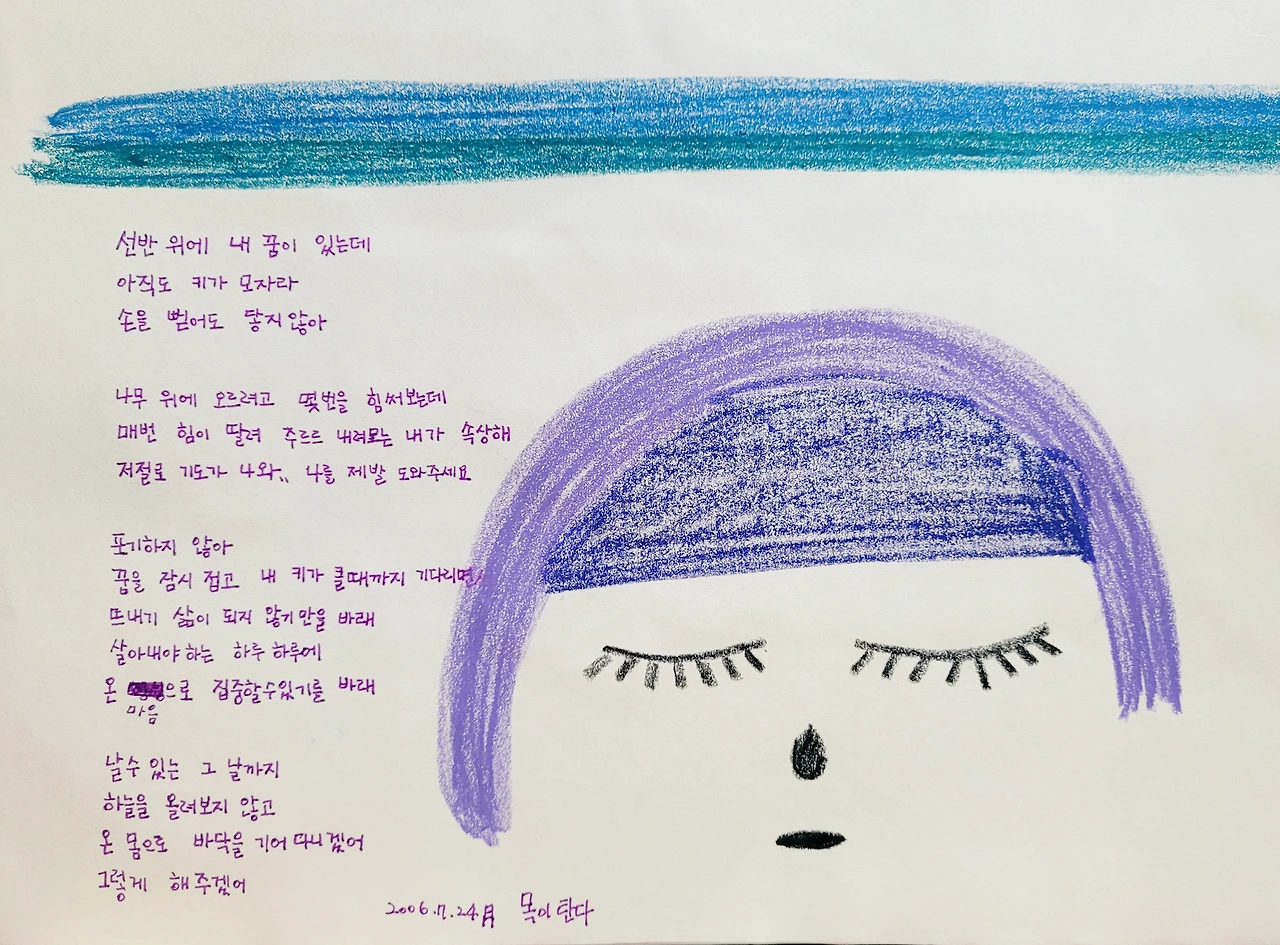 선반 위에 내 꿈이 있는데
아직도 키가 모자라
손을 뻗어도 닿지 않아
나무 위에 오르려고 몇번을 힘써보는데
매번 힘이 딸려 주르르 내려오는 내가 속상해
저절로 기도가 나와.. 나를 제발 도와주세요
포기하지 않아
꿈을 잠시 접고 내 키가 클때까지 기다리면
뜨내기 삶이 되지 않기만을 바래
살아내야 하는 하루 하루에
온 으로 집중할수있기를 바래
마음
날수 있는 그 날까지
하늘을 올려보지 않고
온 몸으로 바닥을 기어 다니겠어
그렇게 해주겠어
2006.7.24月 목이 탄다